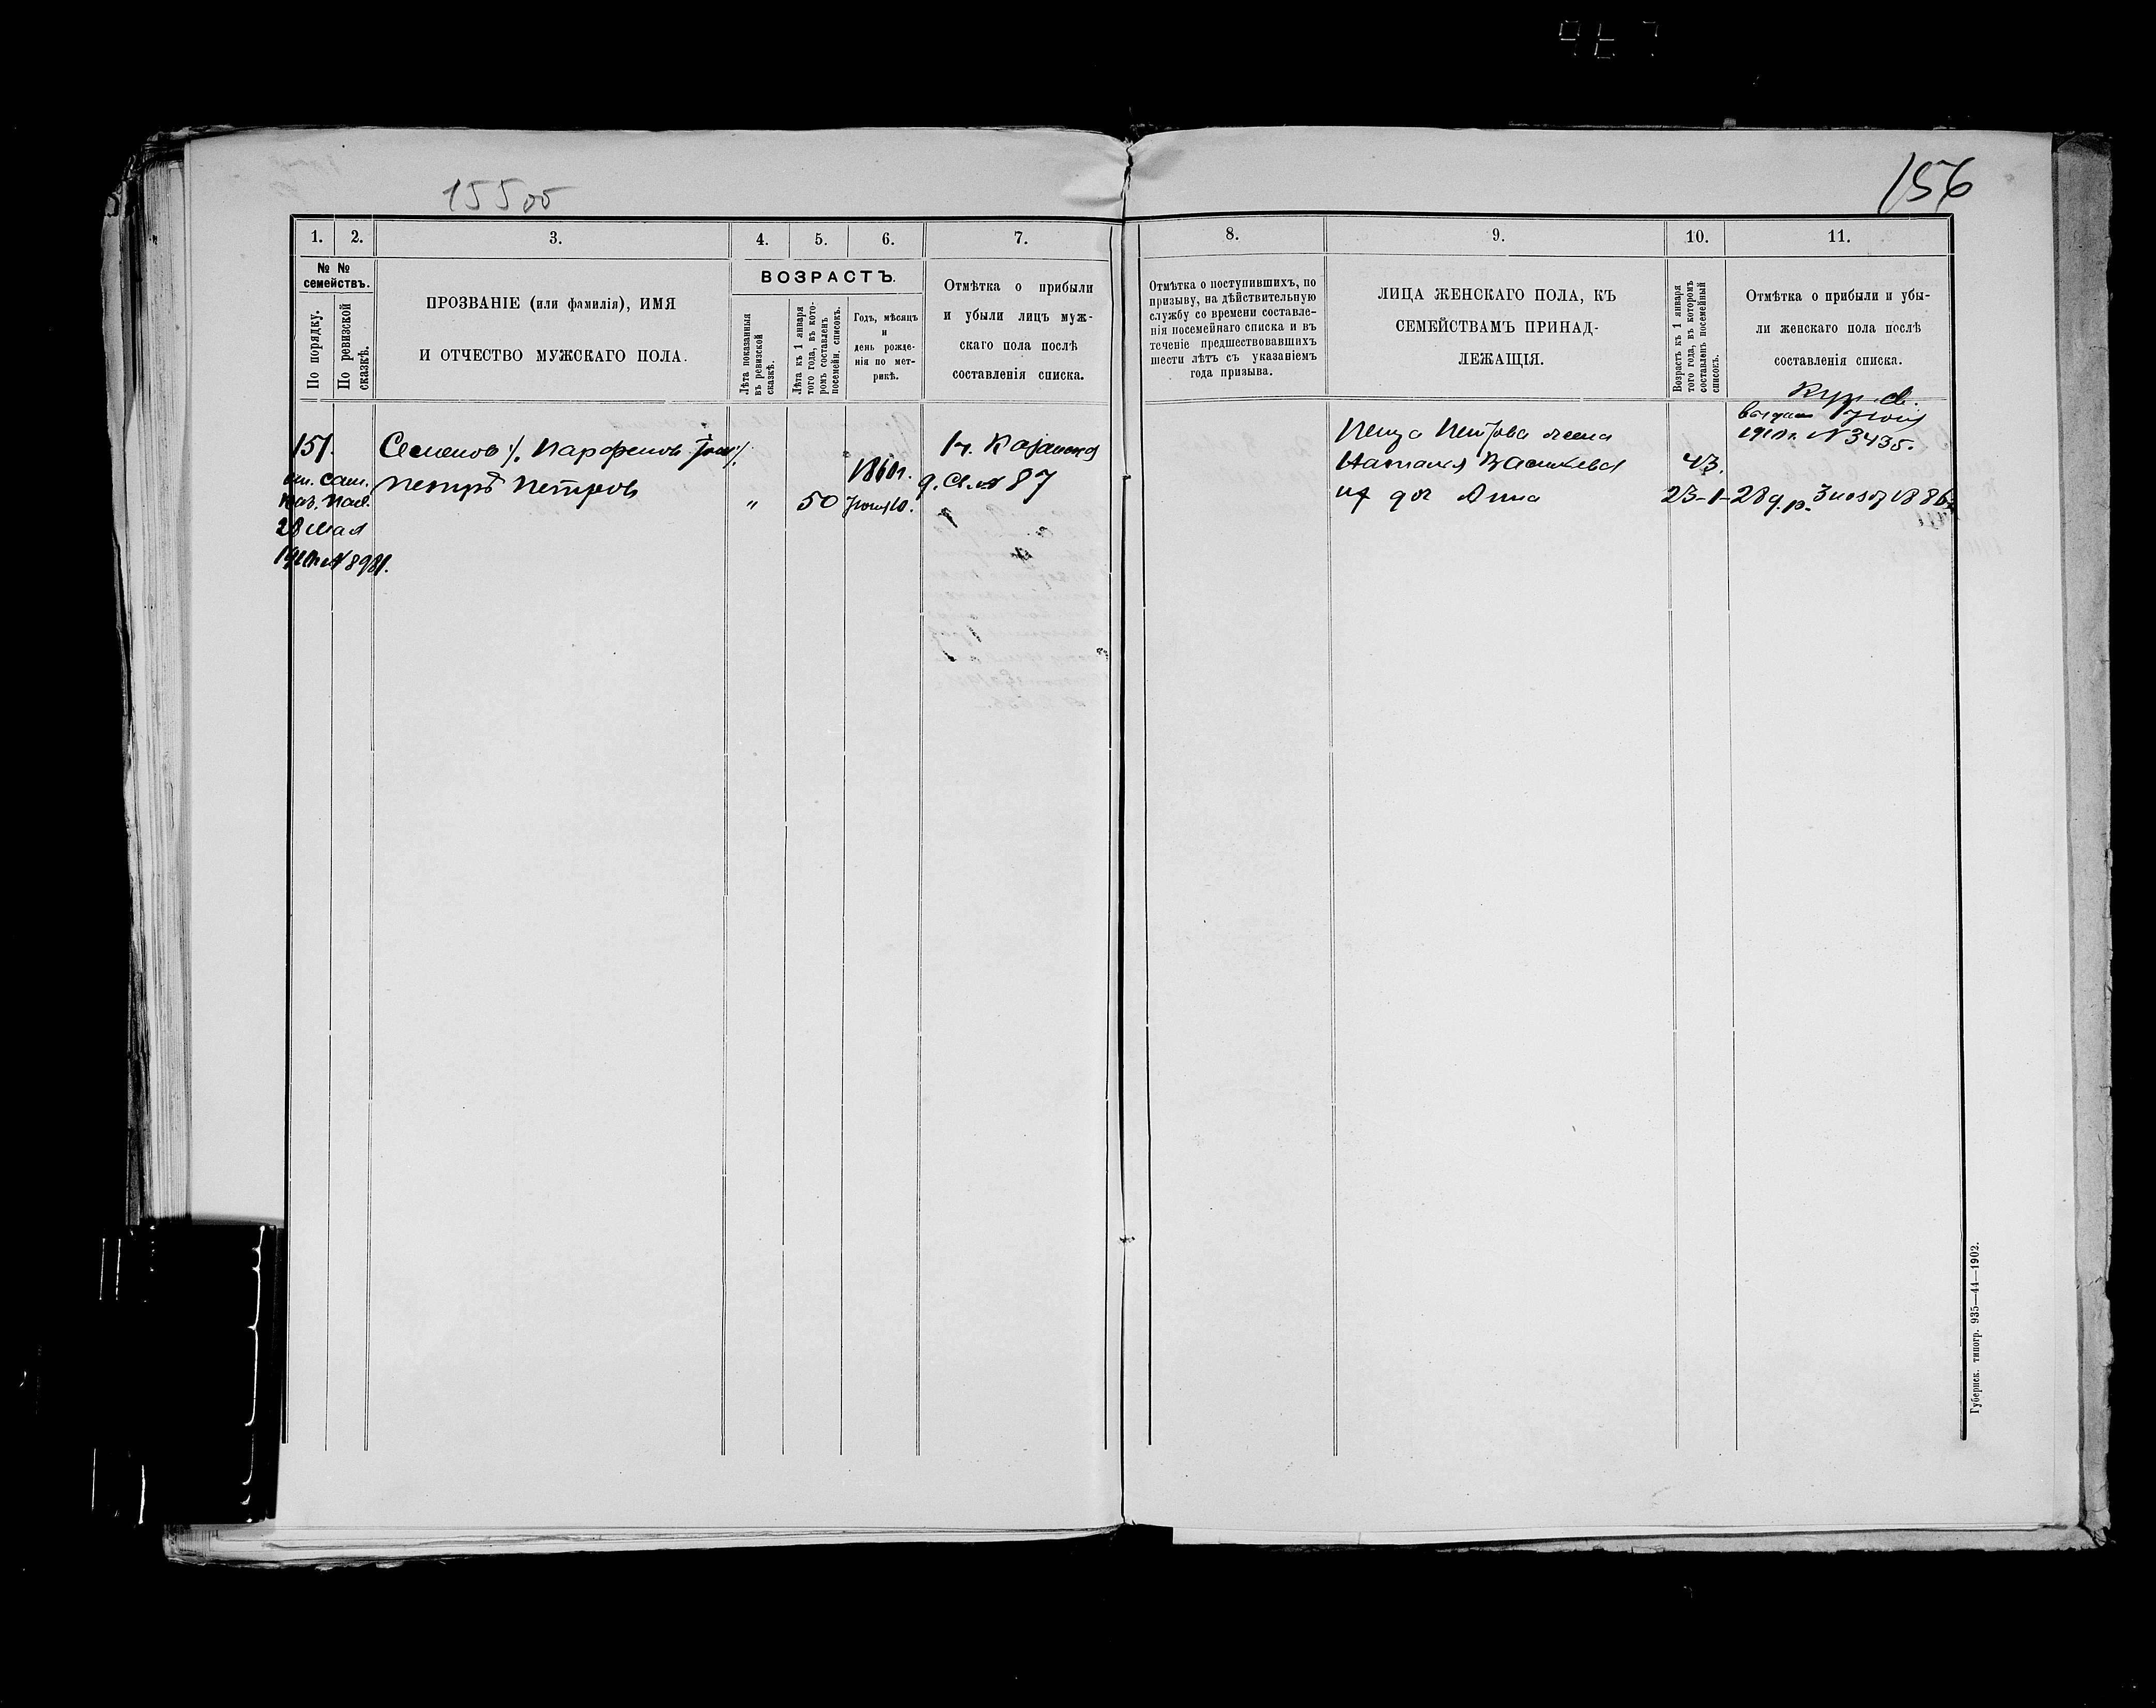 155об
156
1.
2.
3.
4.
5.
6.
7.
8.
9.
10.
11.
№ №
семействъ.
По порядку.
По ревизской
сказкѣ.
ПРОЗВАНІЕ (или фамилія), ИМЯ
И ОТЧЕСТВО МУЖСКАГО ПОЛА.
ВОЗРАСТЪ.
Лѣта показанныя
въ ревизской
сказкѣ.
Лѣта къ 1 января
того года, въ кото-
ромъ составленъ
посемейн. списокъ.
Годъ, мѣсяцъ
и
день рожде-
нія по мет-
рикѣ.
Отмѣтка о прибыли
и убыли лицъ муж-
скаго пола послѣ
составленія списка.
Отмѣтка о поступившихъ, по
призыву, на дѣйствительную
службу со времени составле-
нія посемейнаго списка и въ
теченіе предшествовавшихъ
шести лѣтъ съ указаніемъ
года призыва.
ЛИЦА ЖЕНСКАГО ПОЛА, КЪ
СЕМЕЙСТВАМЪ ПРИНАД-
ЛЕЖАЩІЯ.
Возрастъ къ 1 января
того года, въ которомъ
составленъ посемейный
списокъ.
Отмѣтка о прибыли и убы-
ли женскаго пола послѣ
составленія списка.
151.
Каз. Пал.
28 мая
1910 г. № 8981.
Семенов /. Парфенов
Петръ Петров
" 50
1860 г.
Іюня 10.
1 ч. Казанска
д. св. № 87
Петра Петрова жена
Наталья Васильева 43.
их доч Анна 23-1-28 д. р. 3 нояб 1886
Кур. св.
выдан Іюня
1910 г. № 3435.
Губернск. типогр. 935—44—1902.